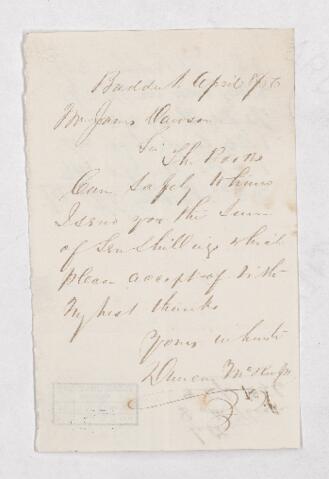 Baddeck April
Mr James Dawson
Sir The Books
Came Safely to hand
I send you the Sum
of Ten Shillings which
please accept of with
My best thanks
Yours in haste
Duncan